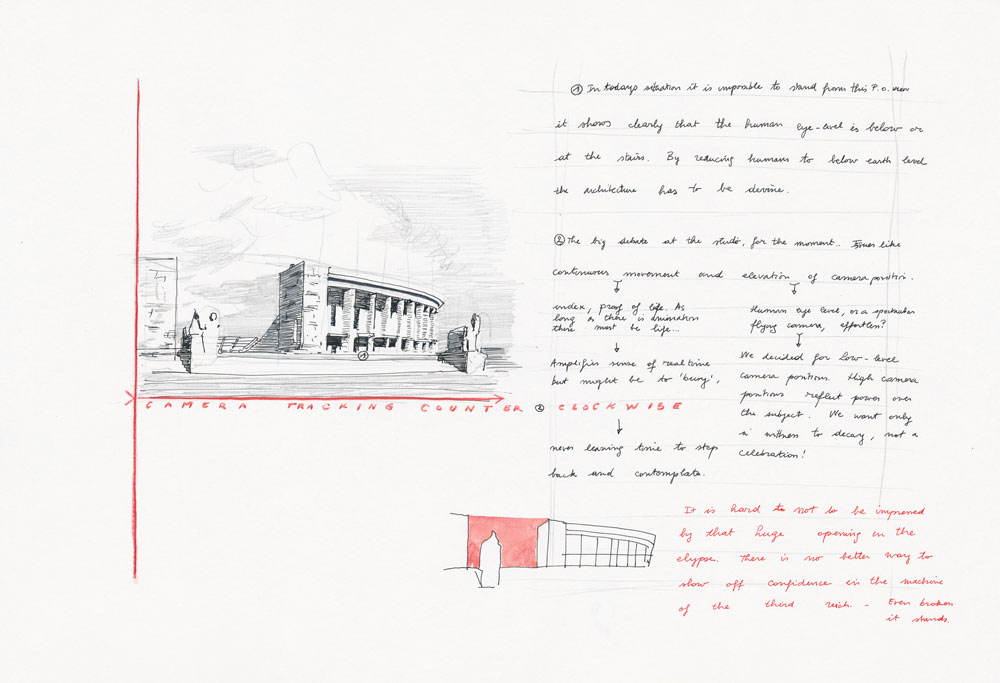 ① In todays situation it is impossible to stand from this P.O. view
it shows clearly that the human eye-level is below or
at the stairs. By reducing humans to below earth level
the architecture has to be devine.
② The big debate at the studio, for the moment.. Issues like
continuous movement and elevation of cameraposition.
index, proof of life. As
long as there is animation
there must be life...
Amplifies sense of real time
but might be to 'being',
never leaving time to step
back and contemplate.
Human eye level, or a spectacular
flying camera, effortless?
We decided for low-level
camera positions. High camera
positions reflect power over
the subject. We want only
a witness to decay, not a
celebration!
①
CAMERA TRACKING COUNTER ② CLOCKWISE
It is hard to not to be impressed
by that huge opening in the
elypse. There is no better way to
show off confidence in the machine
of the third reich. - Even broken
it stands.